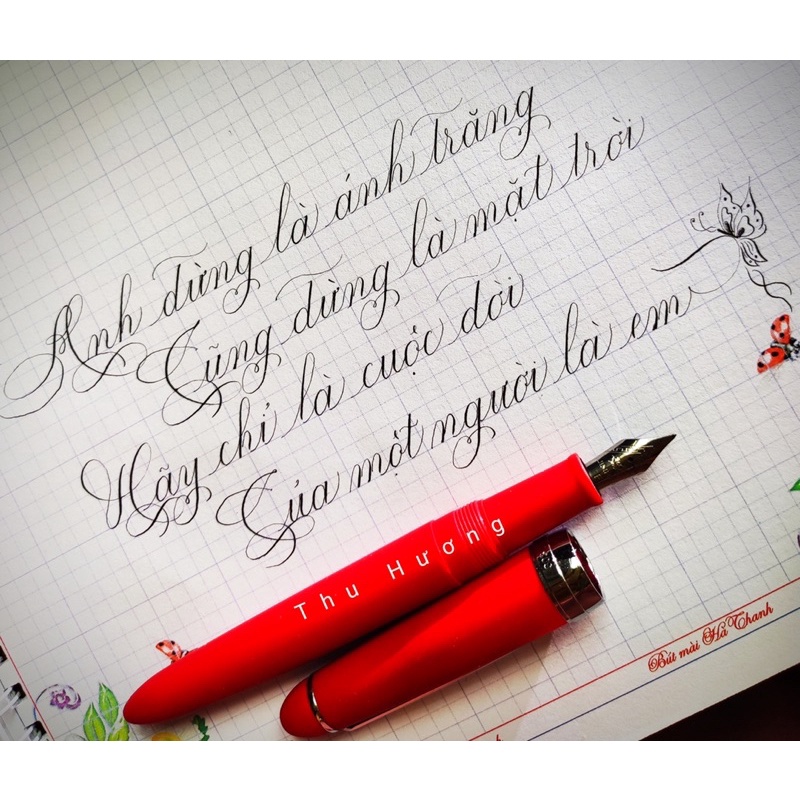 Anh đừng là ánh trăng
Cũng đừng là mặt trời
Hãy chỉ là cuộc đời
Của một người là em
Thu Hương
Bút mài Hà Thanh